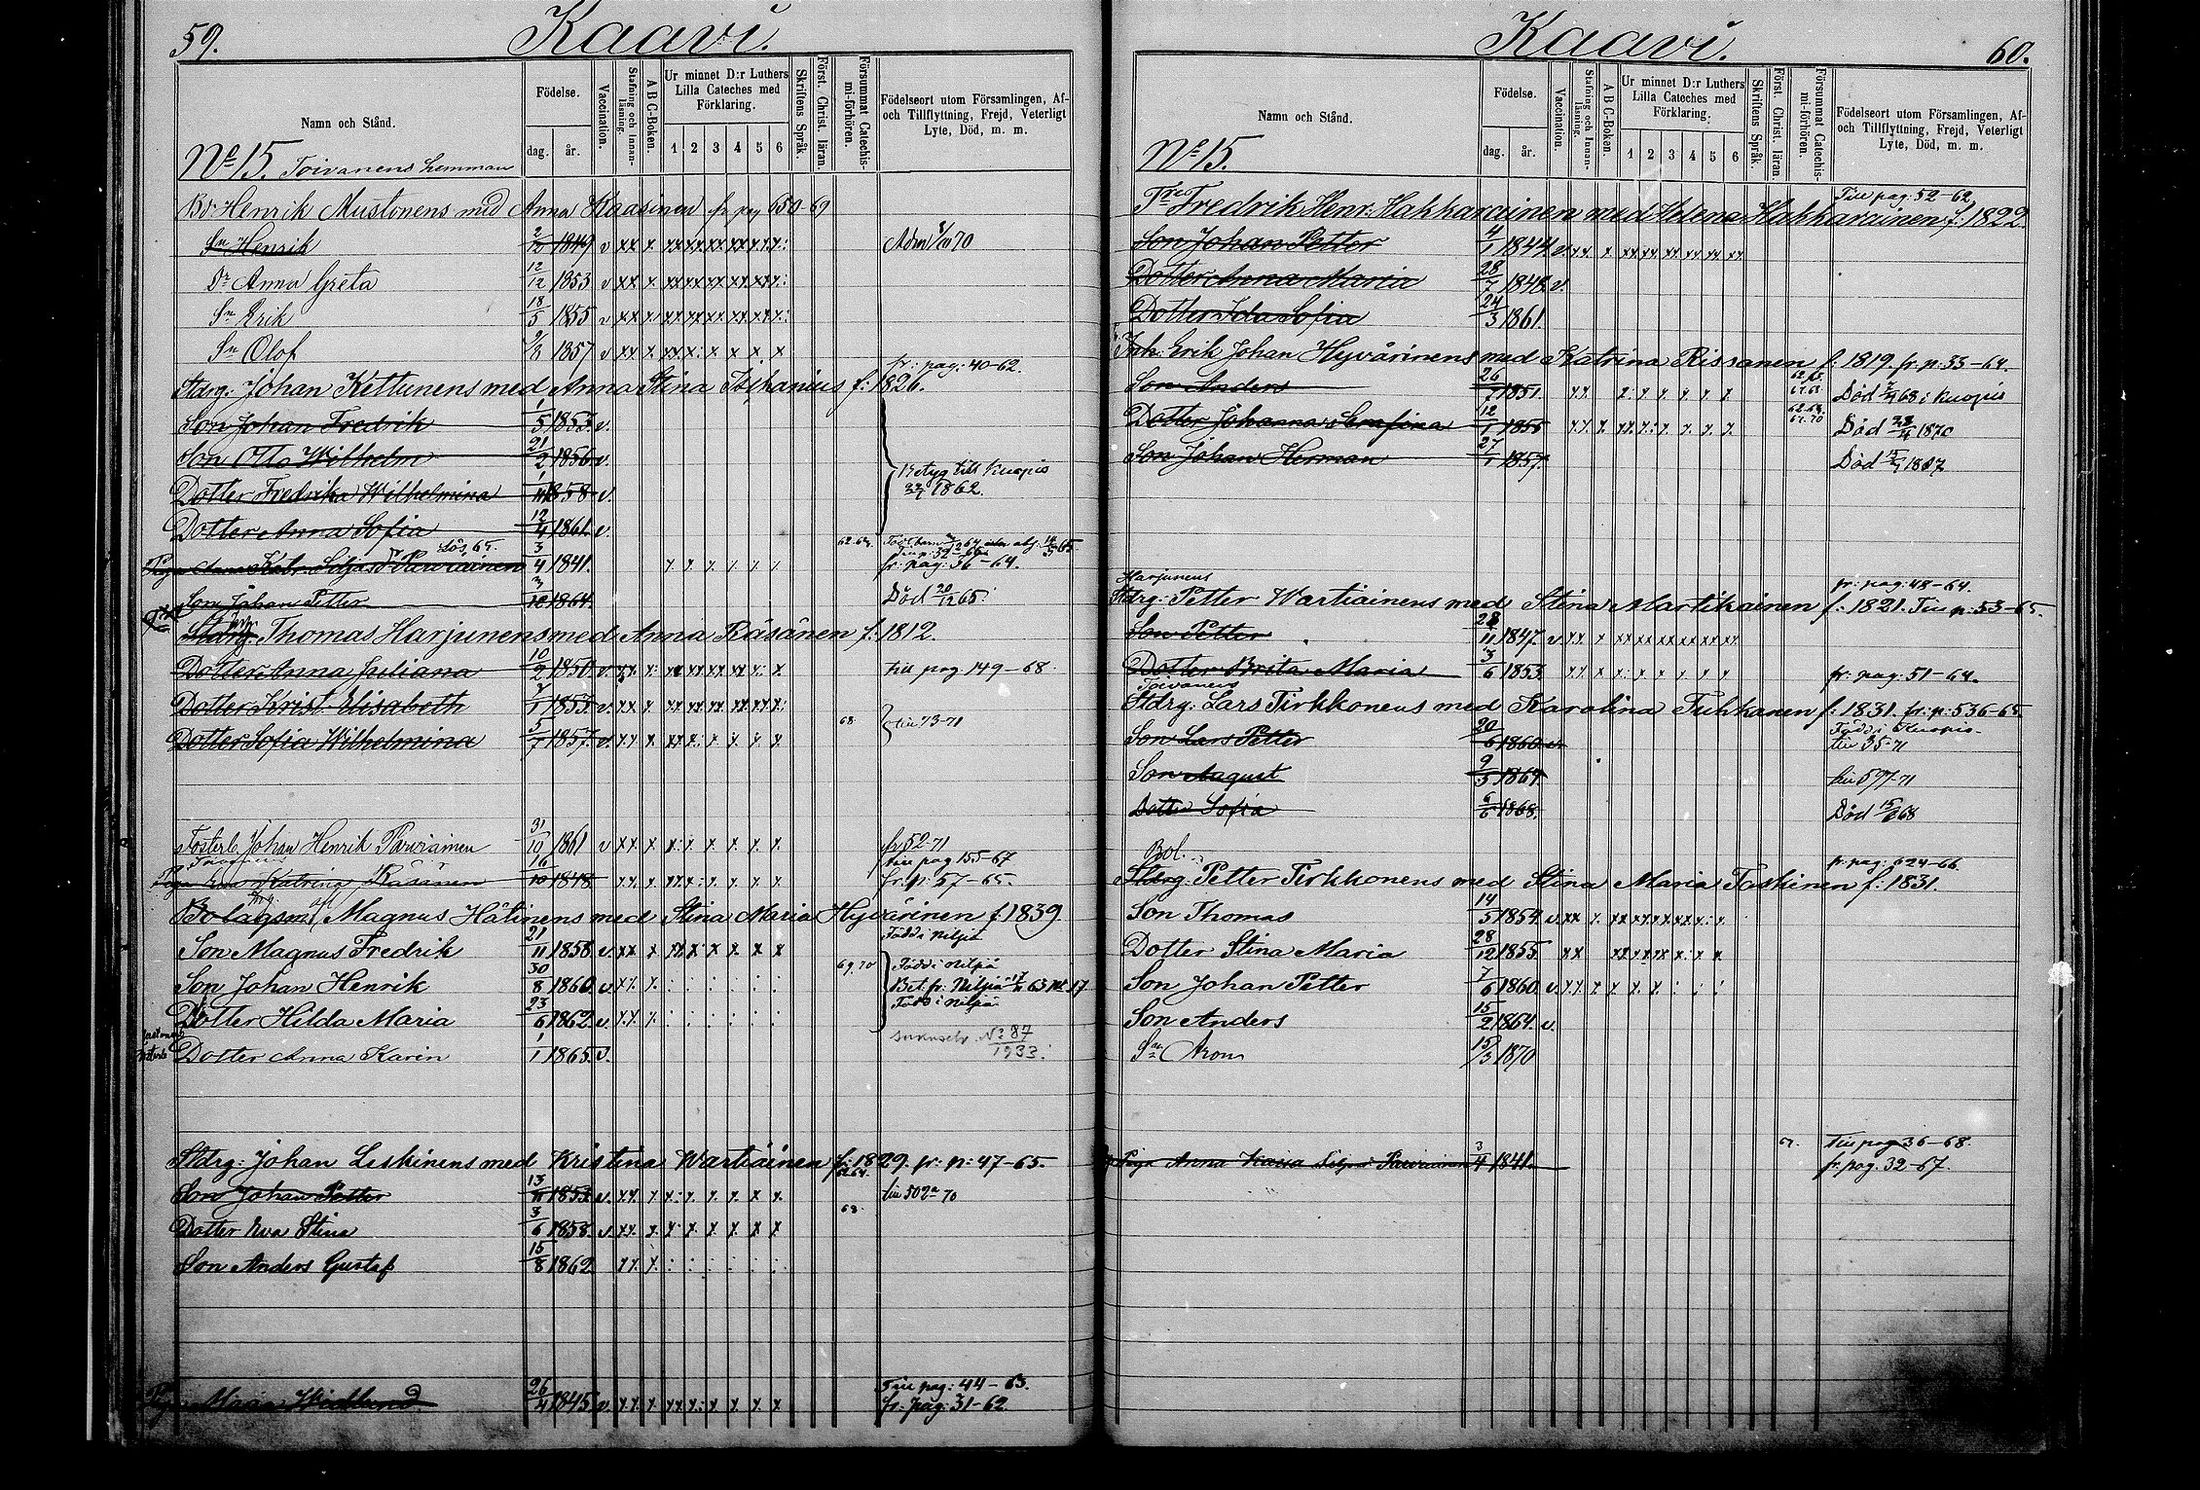 59.
Kaavi.
Namn och Stånd.
Födelse.
dag. år.
Vaccination.
Stafning och Innanläsning.
A B C-Boken.
Ur minnet D:r Luthers Lilla Cateches med Förklaring.
1 2 3 4 5 6
Skriftens Språk.
Först. Christ. läran.
Försummat Catechismi-förhören.
Födelseort utom Församlingen, Af- och Tillflyttning, Frejd, Veterligt Lyte, Död, m. m.
No 15. Toivanens hemman
Bd: Henrik Mustonens med Anna Kaasinen fr pag 650-69
Sn Henrik 1849 v xx x xx xx xx xx xx x:
Dr Anna Greta 12/12 1853 v xx x xx xx xx xx xx x:
Sn Erik 18/5 1855 v xx x xx xx xx xx xx x:
Sn Olof 9/8 1857 v xx x xx x: x x x x
fr: pag: 40-62.
Stdrg: Johan Kettunens med Anna Stina f: 1826.
Son Johan Fredrik 1/5 1853. v.
Son Otto Wilhelm 21/2 1856. v.
Dotter Fredrika Wilhelmina 1/11 1858 v. Betyg till Kuopio 1862.
Dotter Anna Sofia 12/4 1861. v.
Piga Anna Katr. Silj:s Dr Parviainen 3/4 1841. fr: pag: 36-64.
Son Johan Petter 1864. Död 20/12 65.
Thomas Harjunens med Anna Räsänen f: 1812.
Dotter Anna Juliana 10/2 1850. v. till pag. 149-68.
Dotter Krist. Elisabeth 1853. v. xx x xx xx xx xx xx x:
Dotter Sofia Wilhelmina 5/7 1857. v. xx x xx x: x x x x 68 till 73-71
Fosterb. Johan Henrik Parviainen 31/10 1861 v xx x x: x x x x x fr 52-71
till pag 155-67
Piga Eva Katrina Räsänen 16/10 1848 fr: p: 57-65.
Bolagsm Magnus Hätinens med Stina Maria Hyvärinen f: 1839
Son Magnus Fredrik 21/11 1858. v. xx x xx x: x x. x x Född i Nilsiä
Son Johan Henrik 30/8 1860. v xx x: : : : : : 69,70 Född i Nilsiä
Bet. fr. Nilsiä 63 No 17
Dotter Hilda Maria 23/6 1862. v. xx x: : : : : : Född i Nilsiä
Dotter Anna Karin 1/1 1865. v. No 87/1933.
Stdrg: Johan Leskinens med Kristina Wartiainen f: 1829. fr: p: 47-65.
Son Johan Petter 13/11 1853. v. till 502a 70
Dotter Eva Stina 3/6 1858. v. xx. x. x: x. x x. x x 68.
Son Anders Gustaf 15/8 1862 xx x. : : : : : :
Till pag: 44-63.
Piga Maria Widlund 26/4 1845. v. fr: pag: 31-62
Kaavi.
60.
Namn och Stånd.
Födelse.
dag. år.
Vaccination.
Stafning och Innanläsning.
A B C-Boken.
Ur minnet D:r Luthers Lilla Cateches med Förklaring.
1 2 3 4 5 6
Skriftens Språk.
Först. Christ. läran.
Försummat Catechismi-förhören.
Födelseort utom Församlingen, Af- och Tillflyttning, Frejd, Veterligt Lyte, Död, m. m.
No 15.
Till pag: 52-62
Fredrik Henr: Hakkarainen med Helena Hakkarainen f: 1822.
Son Johan Petter 4/1 1844. v. xx x xx xx xx xx xx xx
Dotter Anna Maria 28/7 1848. v.
Dotter Ida Sofia 24/3 1861.
Inh: Erik Johan Hyvärinens med Katrina Rissanen f: 1819. fr: p: 33-64.
Son Anders 26/7 1851. Död 68 i Kuopio
Dotter Johanna Serafina 12/1 1855 Död 1870
Son Johan Herman 27/1 1857. Död
Harjunens
fr: pag: 48-64.
Stdrg: Petter Wartiainens med Stina Martikainen f: 1821. Till p: 53-65.
Son Petter 28/11 1847. v. xx x xx xx xx xx xx xx
Dotter Brita Maria 3/6 1853. fr: pag: 51-64.
Toivanens
Stdrg: Lars Tirkkonens med Karolina Tuhkanen f: 1831. fr: p: 536-65.
Son Lars Petter 20/6 1860 v. Född i Kuopio.
till 35-71
Son August 9/5 1864 till 597-71
Dotter Sofia 6/6 1868. Död 15/6 68
Bol.
fr: pag: 624-66
Stdrg: Petter Tirkkonens med Stina Maria Toskinen f: 1831.
Son Thomas 14/5 1854. v. xx x. xx xx xx xx x: x.
Dotter Stina Maria 28/12 1855. xx xx xx xx x: x x.
Son Johan Petter 7/6 1860 v. xx x x. x. x : : :
Son Anders 15/2 1864. v.
Sn Aron 15/3 1870
67. Till pag 36-68.
Piga Anna Kaisa Parviainen 3/4 1841. fr. pag. 32-67.